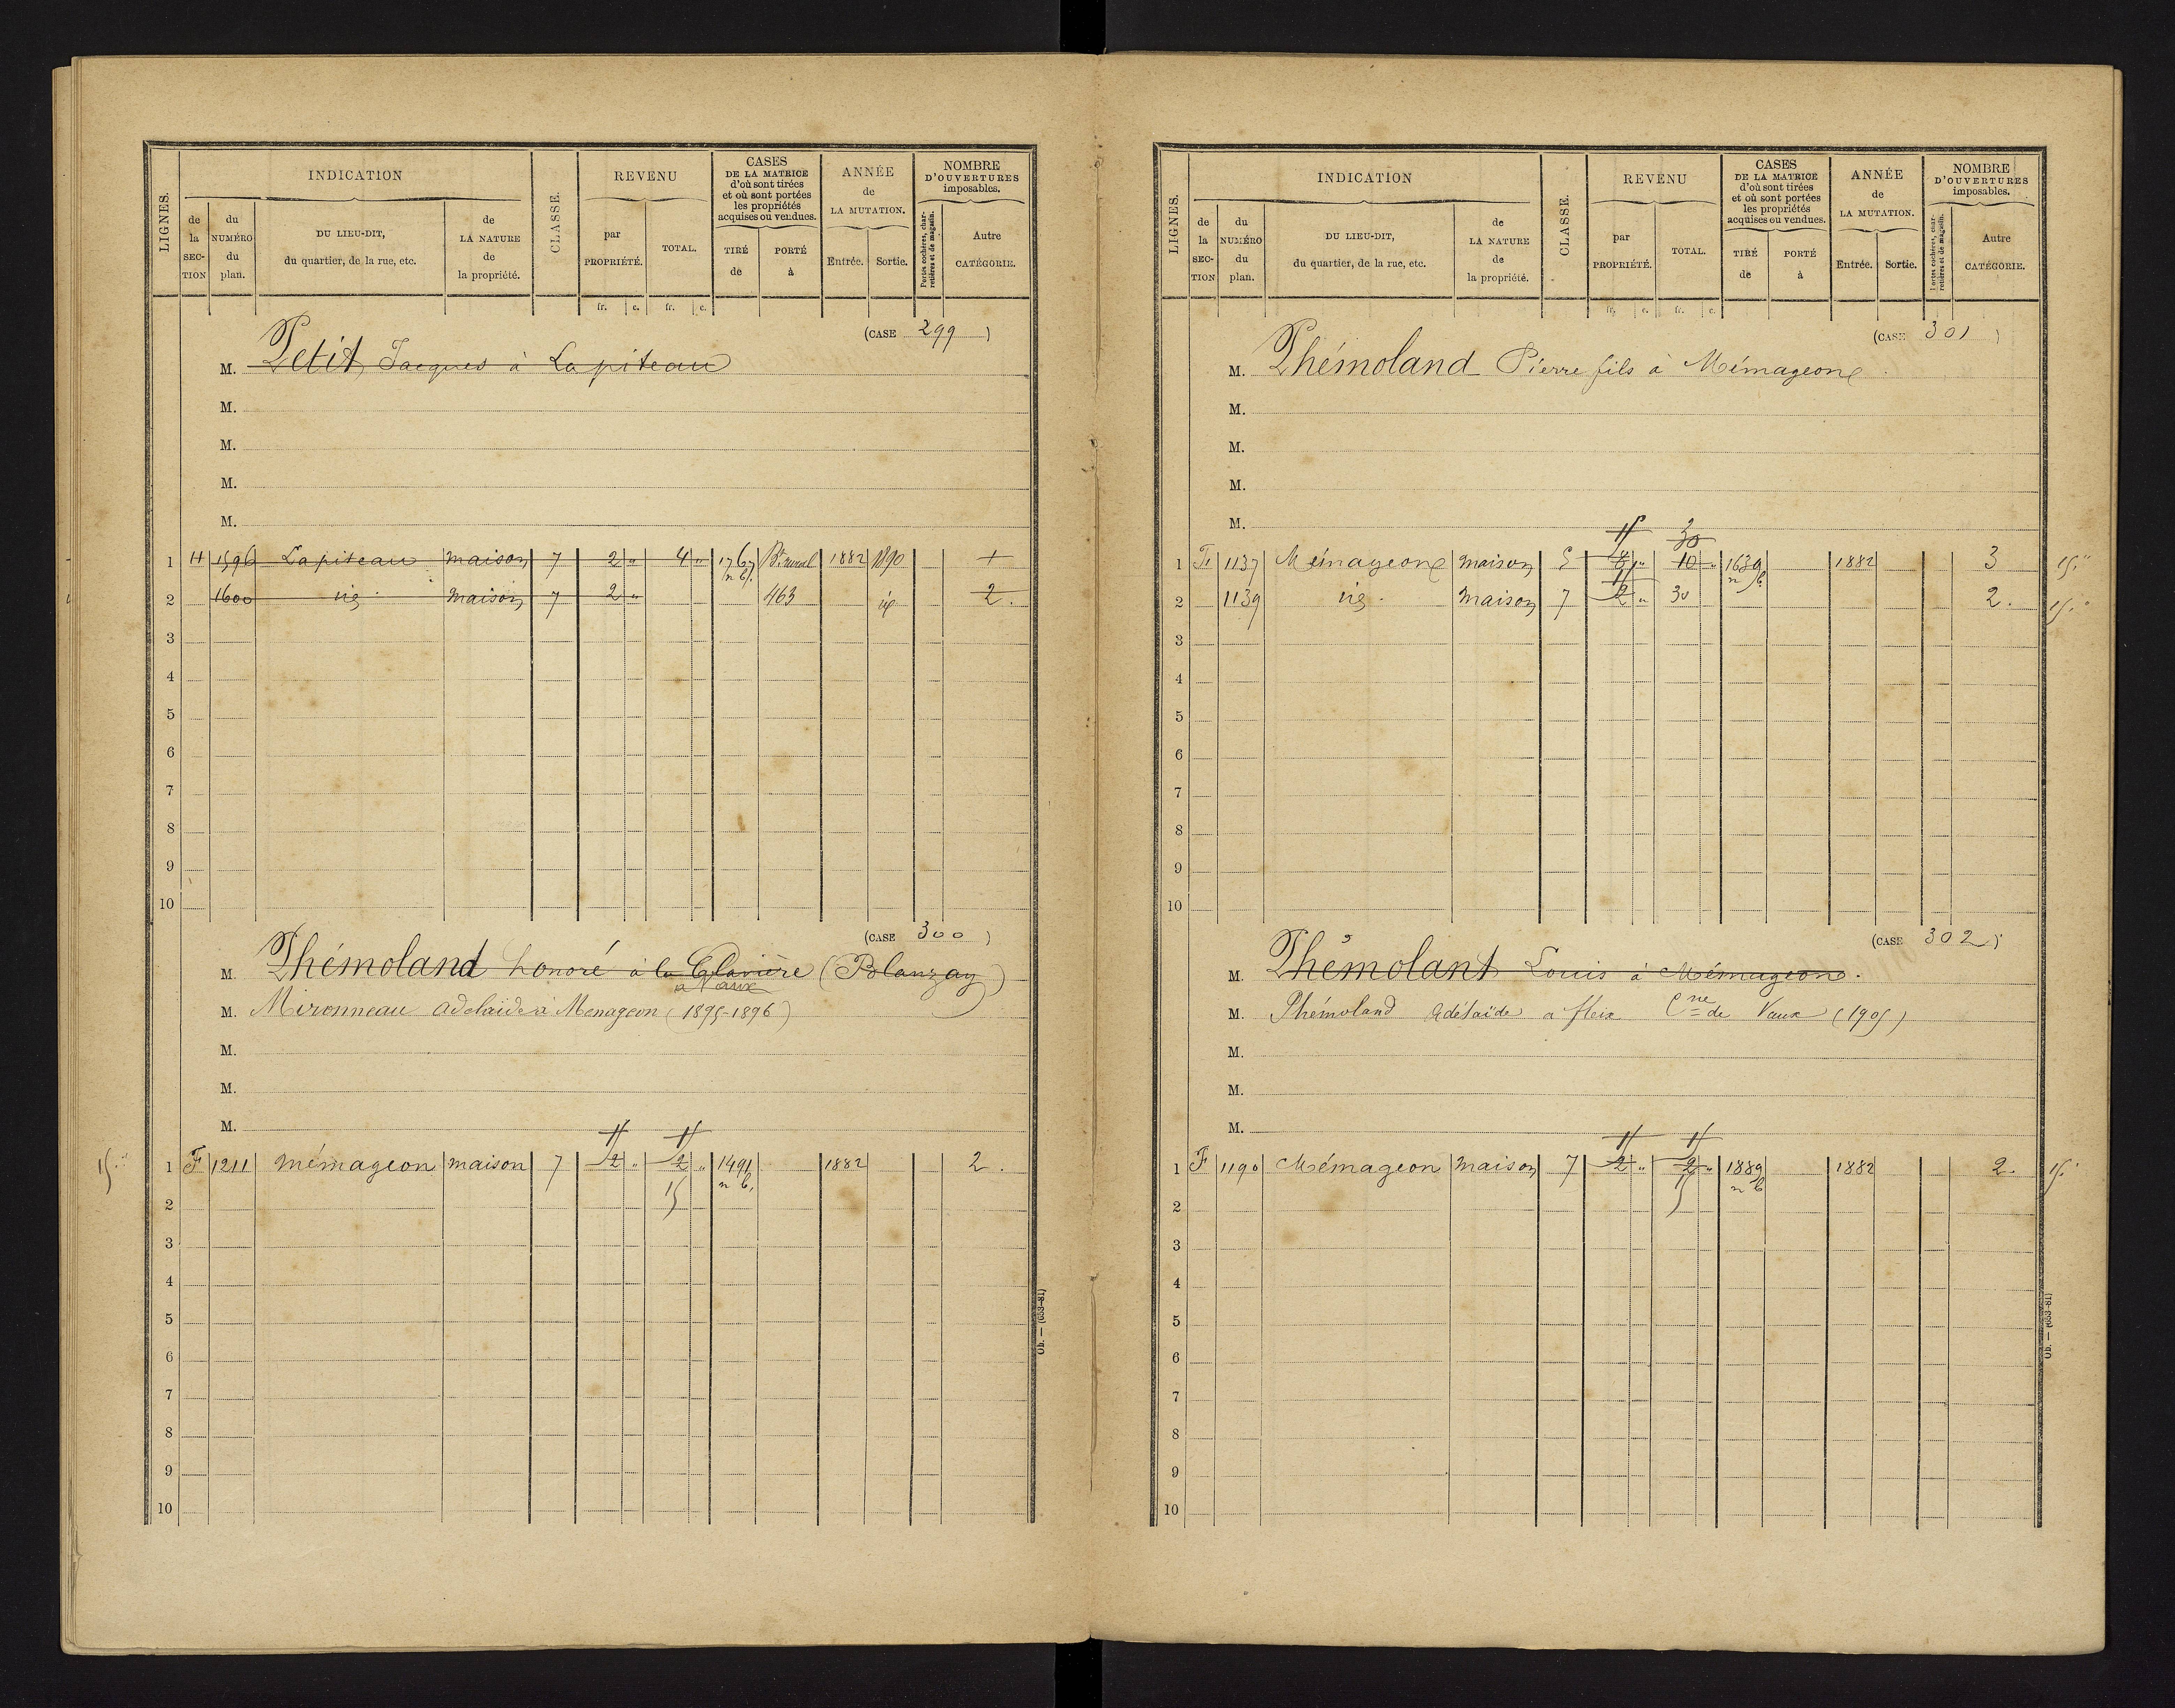 LIGNES. INDICATION CLASSE. REVENU CASES DE LA MATRICE d'où sont tirées et où sont portées les propriétés acquises ou vendues. ANNÉE de LA MUTATION. NOMBRE D'OUVERTURES imposables.
de la SECTION du NUMÉRO du plan. DU LIEU-DIT, du quartier, de la rue, etc. de LA NATURE de la propriété. par PROPRIÉTÉ. TOTAL. TIRÉ de PORTÉ à Entrée. Sortie. Portes cochères, charretières et de magasin. Autre CATÉGORIE.
fr. c. fr. c.
(CASE 299)
M. Petit Jacques à Lapiteau
M.
M.
M.
M.
1 H 1596 Lapiteau maison 7 2 " 4 " 1767 n b. Bt rural 1882 1890 1
2 1600 id maison 7 2 " 463 id 2.
3
4
5
6
7
8
9
10
(CASE 300)
M. Phémoland honoré à la Clavière (Blanzay)
à Vaux
M. Mironneau adelaïde à Menageon (1895-1896)
M.
M.
M.
1 F 1211 mémageon maison 7 2 " 2 " 1491 n b. 1882 2.
15
2
3
4
5
6
7
8
9
10
Ob. — (653-81)
LIGNES. INDICATION CLASSE. REVENU CASES DE LA MATRICE d'où sont tirées et où sont portées les propriétés acquises ou vendues. ANNÉE de LA MUTATION. NOMBRE D'OUVERTURES imposables.
de la SECTION du NUMÉRO du plan. DU LIEU-DIT, du quartier, de la rue, etc. de LA NATURE de la propriété. par PROPRIÉTÉ. TOTAL. TIRÉ de PORTÉ à Entrée. Sortie. Portes cochères, charretières et de magasin. Autre CATÉGORIE.
fr. c. fr. c.
(CASE 301)
M. Phémoland Pierre fils à Mémageon
M.
M.
M.
M.
30
1 F 1137 Mémageon maison 5 8 " 10 " 1639 n b. 1882 3 15 "
2 1139 id. maison 7 2 " 30 2. 15 "
3
4
5
6
7
8
9
10
(CASE 302)
M. Phémolant Louis à Mémageon.
M. Phémoland Adélaïde a fleix Cne de Vaux (1905)
M.
M.
M.
1 F 1190 Mémageon maison 7 2 " 2 " 1889 n b 1882 2. 15
15
2
3
4
5
6
7
8
9
10
Ob. — (653-81)